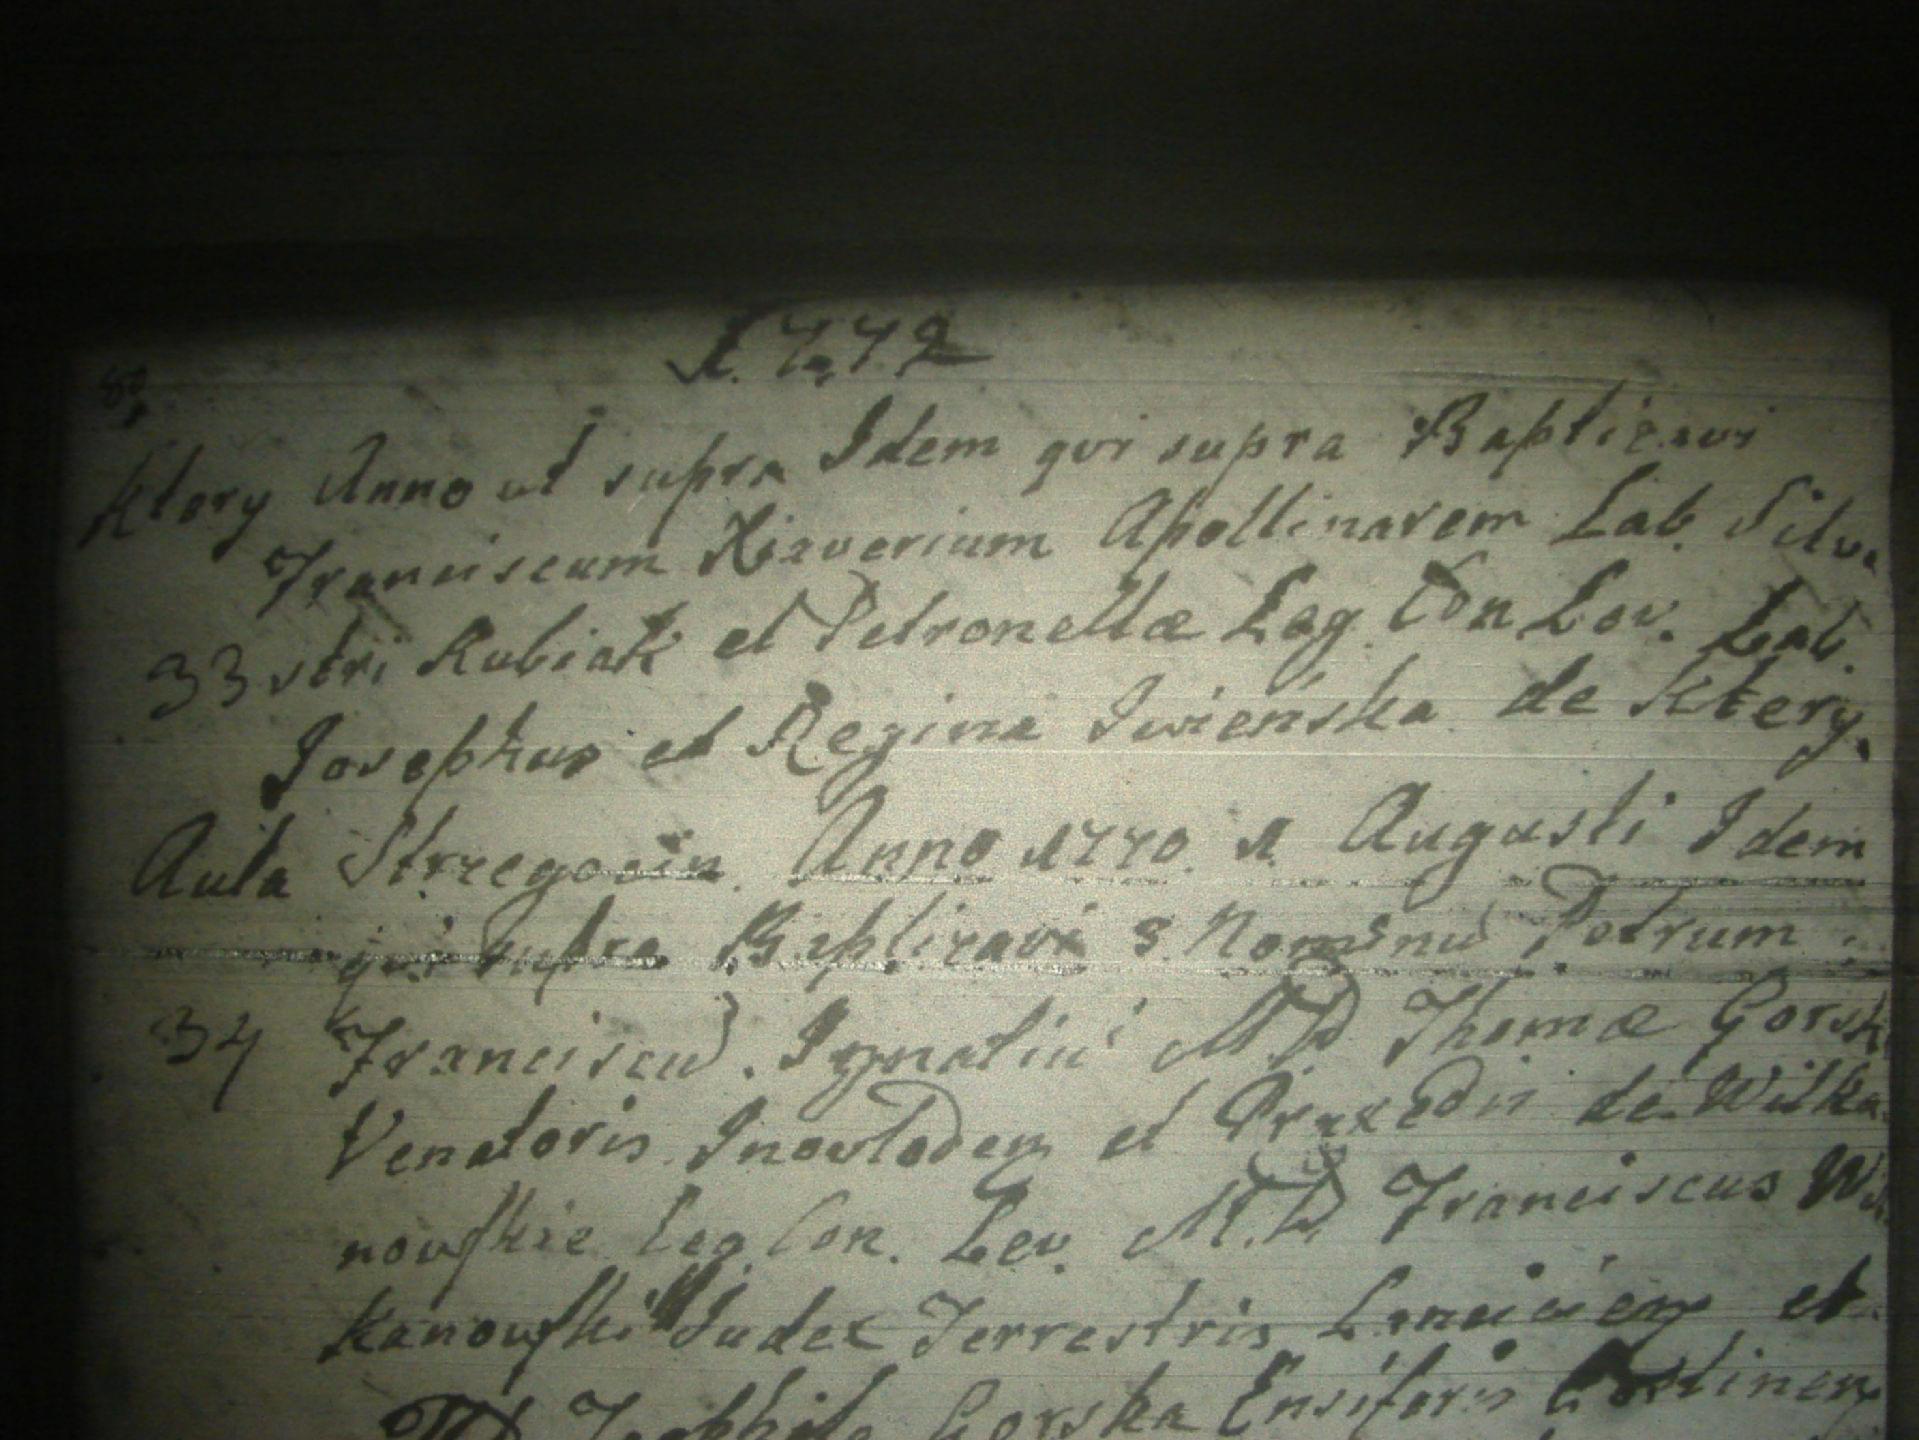 1772
80
Ktory Anno ut supra Idem qui supra Baptizavi
Franciscum Xaverium Apollinarem Lab. Silve
33 stri Kubiak et Petronellæ Lag. Con Lev. Lab.
Josephus et Regina Iwieńska de Ktery.
Aula Strzegocin. Anno 1770. 1. Augusti Idem
qui supra Baptizavi 3. Nominu Petrum.
34 Franciscu. Ignatiu M. D. Thomæ Gorsk
Venatoris Inowlodem et Praxedis de Wilka
nowskie Leg Con. Lev. M. D. Franciscus Wil
kanowski Judex Terrestris et
Gorska Ensiferis